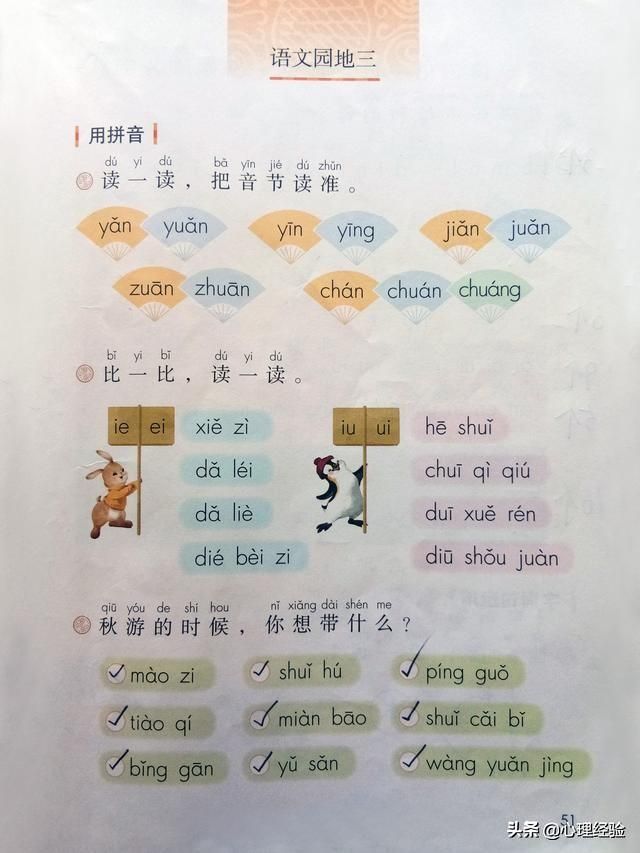 语文园地三
用拼音
dú yi dú bǎ yīn jié dú zhǔn
读一读，把音节读准。
yǎn yuǎn yīn yīng jiǎn juǎn
zuān zhuān chán chuán chuáng
bǐ yi bǐ dú yi dú
比一比，读一读。
ie ei xiě zì iu ui hē shuǐ
dǎ léi chuī qì qiú
dǎ liè duī xuě rén
dié bèi zi diū shǒu juàn
qiū yóu de shí hou nǐ xiǎng dài shén me
秋游的时候，你想带什么？
mào zi shuǐ hú píng guǒ
tiào qí miàn bāo shuǐ cǎi bǐ
bǐng gān yǔ sǎn wàng yuǎn jìng
51
头条 @心理经验